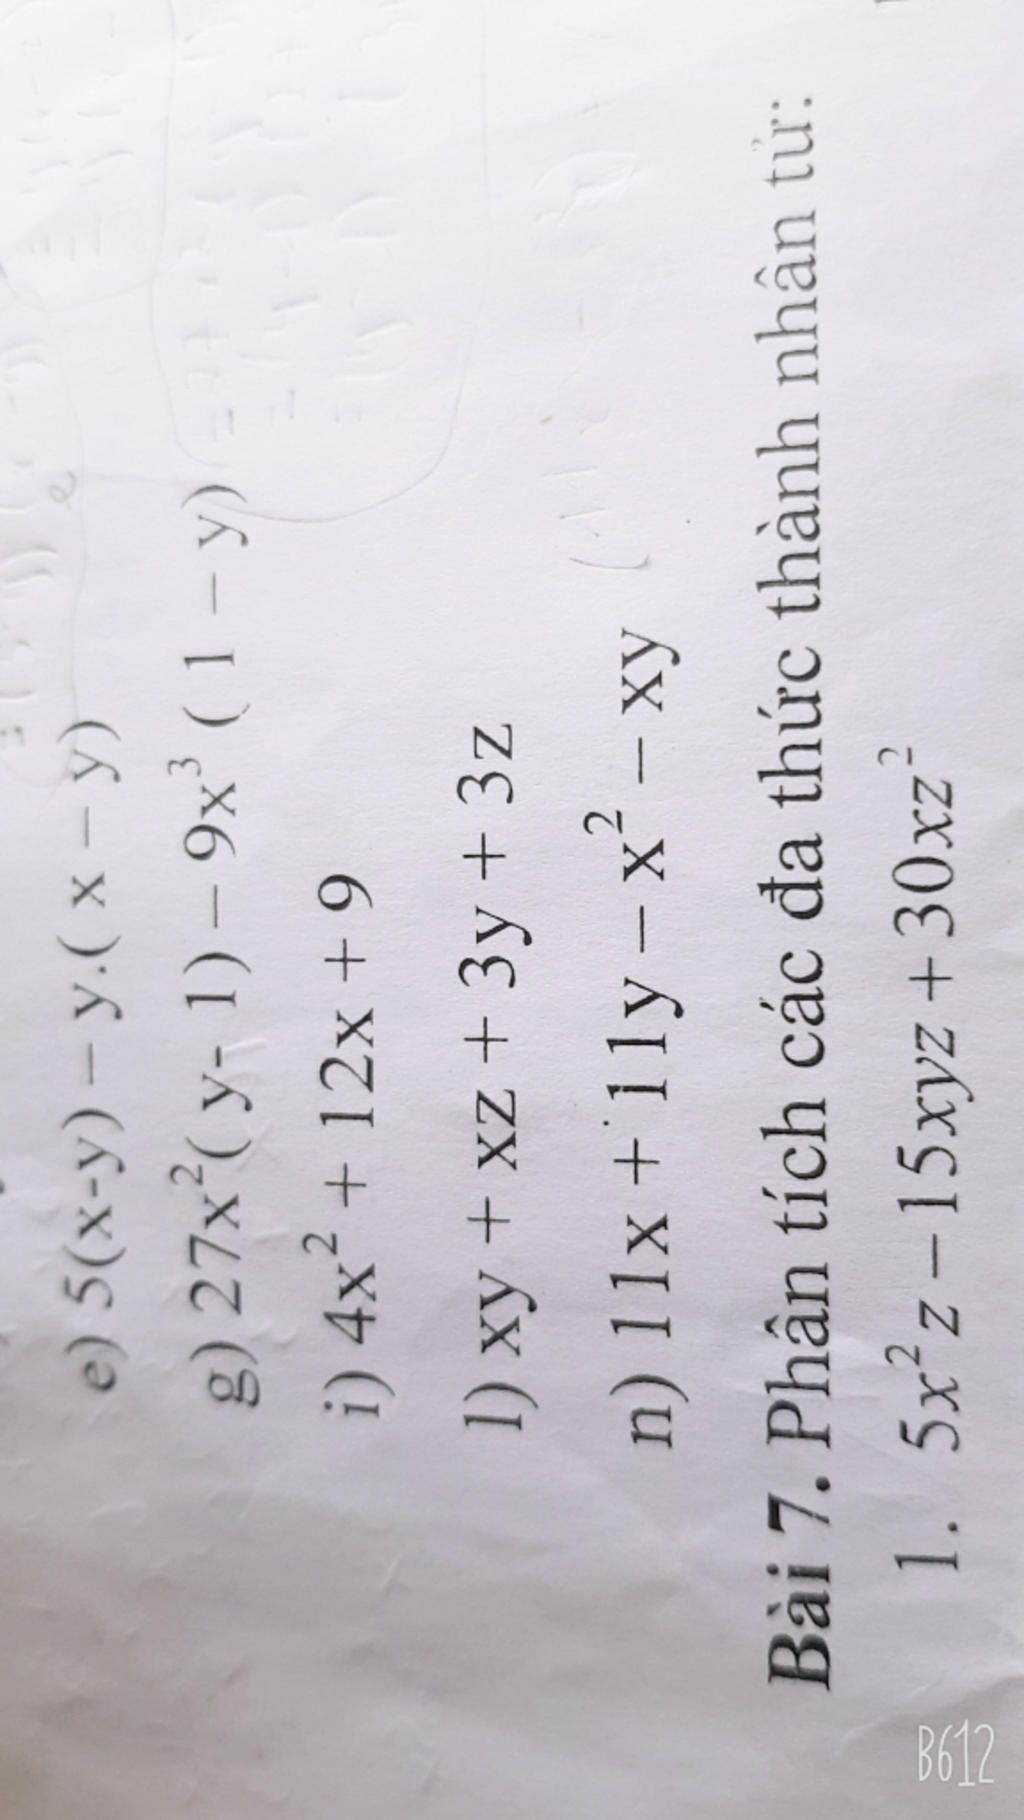 e) 5(x-y) – y.( x – y)
g) 27x²( y- 1) – 9x³ ( 1 – y)
i) 4x² + 12x + 9
l) xy + xz + 3y + 3z
n) 11x + 11y – x² – xy
Bài 7. Phân tích các đa thức thành nhân tử:
1. 5x²z – 15xyz + 30xz²
B612